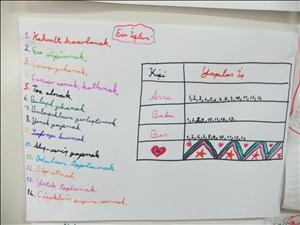 Ev İşleri
1. Kahvaltı hazırlamak.
2. Evi süpürmek.
3. Çamaşır yıkamak.
4. Çamaşır asmak, katlamak.
5. Toz almak.
6. Bulaşık yıkamak.
7. Bulaşıkları yerleştirmek
8. Yemek yapmak.
9. Sofrayı kurmak.
10. Alış-veriş yapmak
11. Odaları toplamak.
12. Çöp atmak.
13. Yatak toplamak.
14. Çiçeklerin suyunu vermek.
Kişi Yapılan İş
Anne 1, 2, 3, 4, 5, 6, 7, 8, 9, 10, 11, 12, 13, 14
Baba
Ben